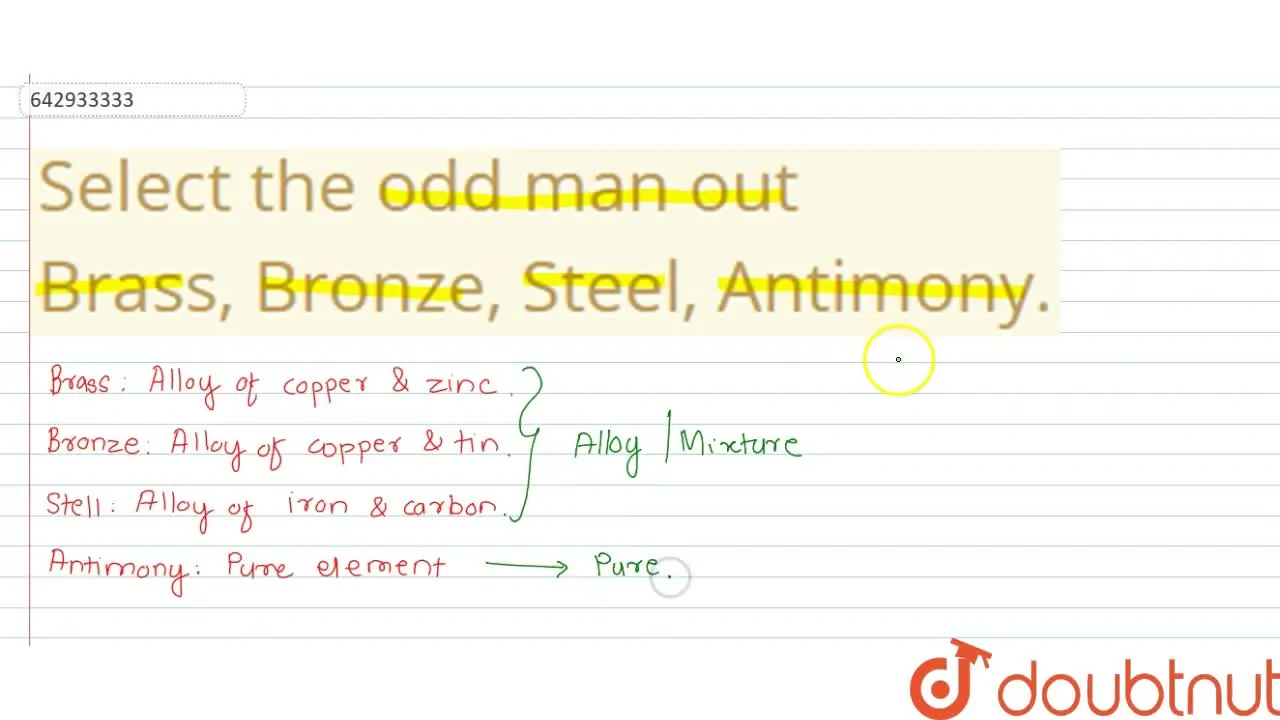 642933333
Select the odd man out
Brass, Bronze, Steel, Antimony.
Brass: Alloy of copper & zinc.
Bronze: Alloy of copper & tin.
Alloy | Mixture
Stell: Alloy of iron & carbon.
Antimony: Pure element → Pure.
doubtnut